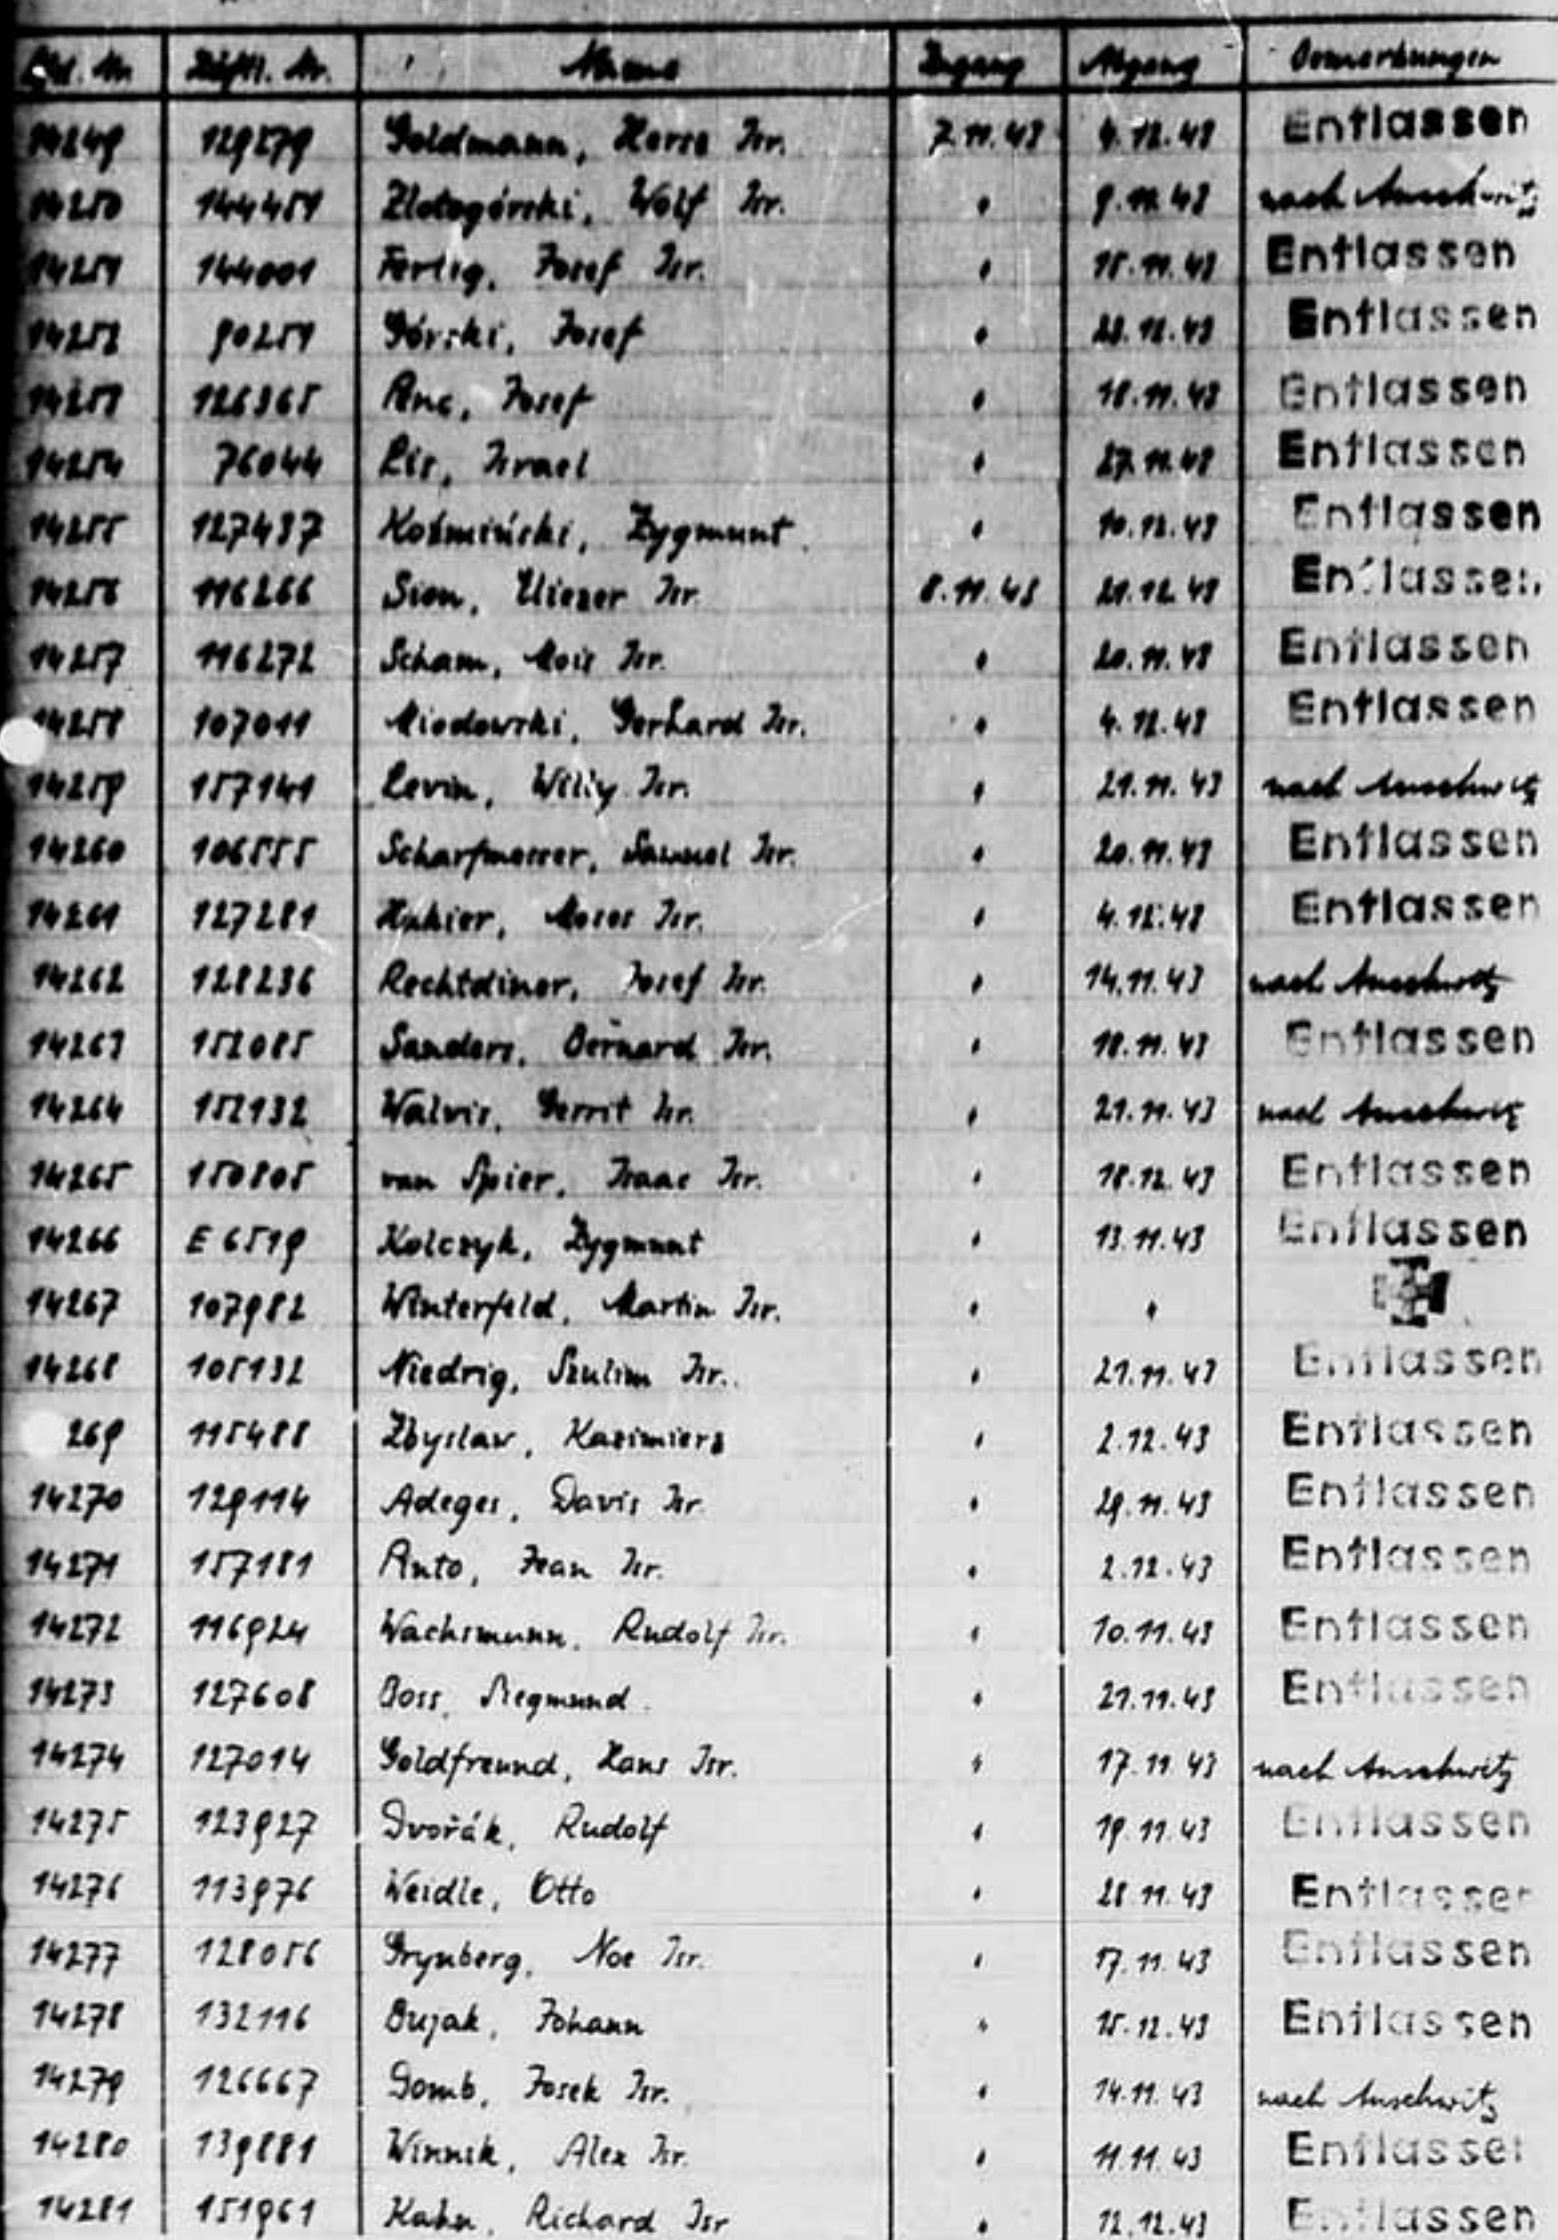 Lfd. Nr. Häftl. Nr. Name Zugang Abgang Bemerkungen
14249 129279 Goldmann, Horst Isr. 7.11.43 4.12.43 Entlassen
14250 144451 Zlotogórski, Wolf Isr. " 9.11.43 nach Auschwitz
14251 144001 Fertig, Josef Isr. " 15.11.43 Entlassen
14252 90251 Górski, Josef " 23.12.43 Entlassen
14253 126365 Josef " 18.11.43 Entlassen
14254 76044 Lis, Israel " 27.11.43 Entlassen
14255 127437 Koźmiński, Zygmunt " 10.12.43 Entlassen
14256 116266 Sion, Eliezer Isr. 8.11.43 21.12.43 Entlassen
14257 116272 Scham, Mois Isr. " 20.11.43 Entlassen
14258 107011 Miodowski, Gerhard Isr. " 4.12.43 Entlassen
14259 157141 Levin, Willy Isr. " 21.11.43 nach Auschwitz
14260 106555 Scharfmesser, Samuel Isr. " 20.11.43 Entlassen
14261 127281 Moses Isr. " 4.12.43 Entlassen
14262 128236 Rechtdiner, Josef Isr. " 14.11.43 nach Auschwitz
14263 152085 Sanders, Bernard Isr. " 18.11.43 Entlassen
14264 152132 Walvis, Gerrit Isr. " 21.11.43 nach Auschwitz
14265 150805 van Spier, Isaac Isr. " 18.12.43 Entlassen
14266 E 6519 Kolczyk, Zygmunt " 13.11.43 Entlassen
14267 107982 Winterfeld, Martin Isr. " "
14268 105132 Niedrig, Szulim Isr. " 21.11.43 Entlassen
269 115488 Zbyslaw, Kazimierz " 2.12.43 Entlassen
14270 129114 Adeges, Davis Isr. " 29.11.43 Entlassen
14271 157181 Anto, Jean Isr. " 2.12.43 Entlassen
14272 116924 Wachsmann, Rudolf Isr. " 10.11.43 Entlassen
14273 127608 Boss, Siegmund " 21.11.43 Entlassen
14274 127014 Goldfreund, Hans Isr. " 17.11.43 nach Auschwitz
14275 123927 Dvořák, Rudolf " 19.11.43 Entlassen
14276 113976 Weidle, Otto " 28.11.43 Entlassen
14277 128056 Grynberg, Noe Isr. " 17.11.43 Entlassen
14278 132116 Bujak, Johann " 15.12.43 Entlassen
14279 126667 Gomb, Josek Isr. " 14.11.43 nach Auschwitz
14280 139881 Winnik, Alex Isr. " 11.11.43 Entlassen
14281 151961 Kahn, Richard Isr " 12.12.43 Entlassen